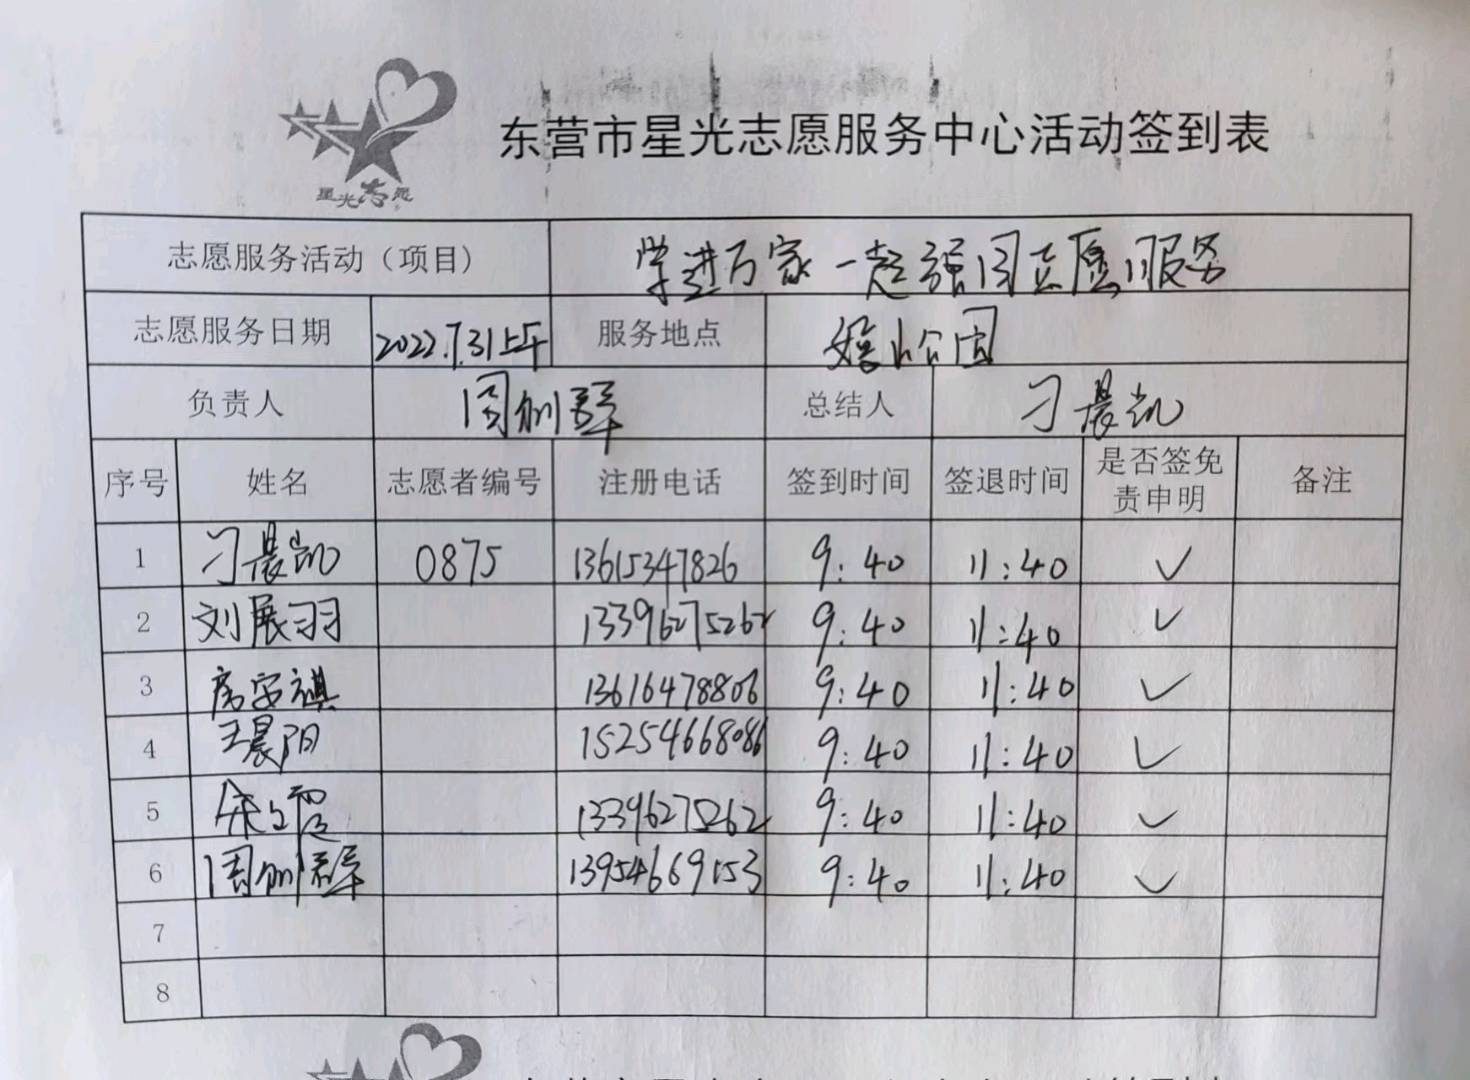 星光志愿
东营市星光志愿服务中心活动签到表
志愿服务活动（项目） 学进万家一起强国志愿服务
志愿服务日期 2022.7.31上午 服务地点 公园
负责人 周 群 总结人 刁晨凯
序号 姓名 志愿者编号 注册电话 签到时间 签退时间 是否签免责申明 备注
1 刁晨凯 0875 13615347826 9:40 11:40 ✓
2 刘展羽 13396275262 9:40 11:40 ✓
3 房安祺 13616478806 9:40 11:40 ✓
4 王晨阳 15254668086 9:40 11:40 ✓
5 13396275262 9:40 11:40 ✓
6 周 群 13954669153 9:40 11:40 ✓
7
8